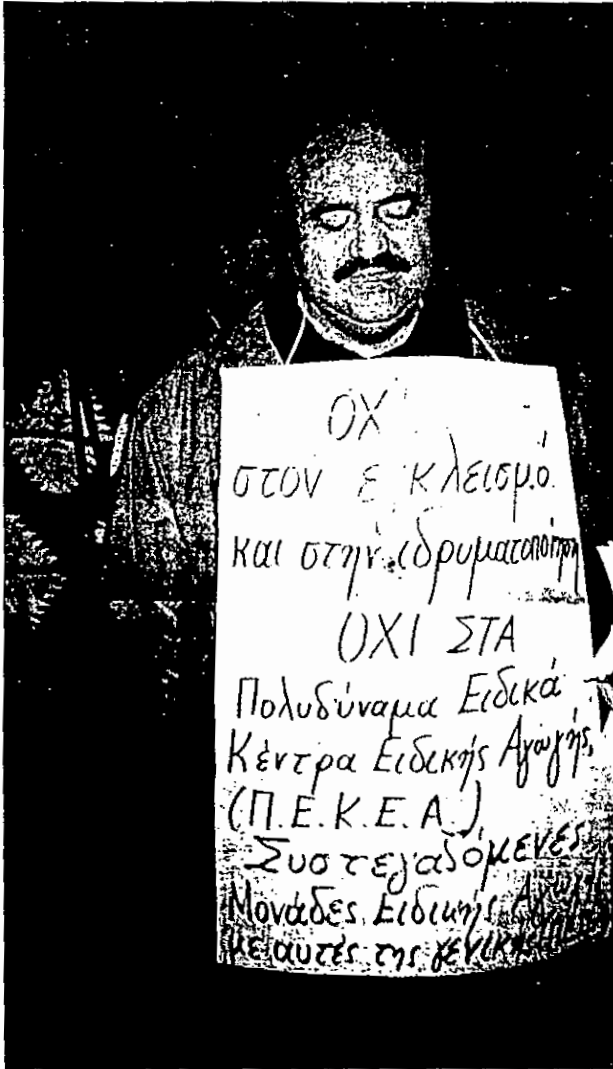 ΟΧ
στον ε κλεισμό
και στην ιδρυματοποίηση
ΟΧΙ ΣΤΑ
Πολυδύναμα Ειδικά
Κέντρα Ειδικής Αγωγής,
(Π.Ε.Κ.Ε.Α.)
Συστεγαδόμενες
Μονάδες Ειδικής
με αυτές της γενικής